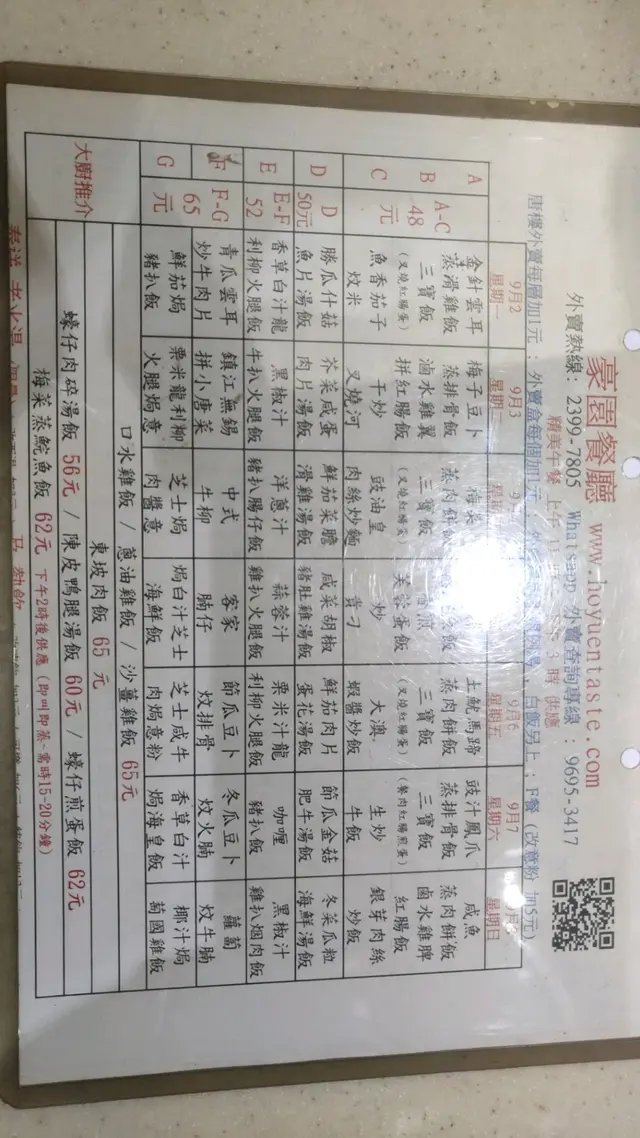 豪園餐廳 www.hoyuentaste.com
外賣熱線: 2399-7805 Whatsapp 外賣查詢專線 : 9695-3417
精美午餐 上午 3 時 供應
唐樓外賣每層加1元 ; 外賣盒每個加1元 白飯另上 ; F餐 (改意粉 加5元)
9月2 9月3 9月6 9月7
星期一 星期二 星期五 星期六 星期日
A 金針雲耳 梅子豆卜 土魷馬蹄 豉汁鳳爪 咸魚
A-C 蒸滑雞飯 蒸排骨飯 蒸肉餅飯 蒸肉餅飯 蒸排骨飯 蒸肉餅飯
B 48 三寶飯 滷水雞翼 三寶飯 三寶飯 三寶飯 鹵水雞脾
(叉燒紅腸蛋) 拼紅腸飯 (叉燒紅腸蛋) 芙蓉蛋飯 (叉燒紅腸蛋) 紅腸飯
C 元 魚香茄子 干炒 豉油皇 炒 大澳 生炒 銀芽肉絲
炆米 叉燒河 肉絲炒麵 貴刁 蝦醬炒飯 牛飯 炒飯
D D 勝瓜什菇 芥菜咸蛋 鮮茄菜膽 咸菜胡椒 鮮茄肉片 節瓜金菇 冬菜瓜粒
50元 魚片湯飯 肉片湯飯 滑雞湯飯 豬肚雞湯飯 蛋花湯飯 肥牛湯飯 海鮮湯飯
E E-F 香草白汁龍 黑椒汁 洋蔥汁 蒜蓉汁 栗米汁龍 咖喱 黑椒汁
52 利柳火腿飯 牛扒火腿飯 豬扒腸仔飯 雞扒火腿飯 利柳火腿飯 豬扒飯 雞扒烟肉飯
F F-G 青瓜雲耳 鎮江無錫 中式 客家 節瓜豆卜 冬瓜豆卜 蘿蔔
炒牛肉片 拼小唐菜 牛柳 腩仔 炆排骨 炆火腩 炆牛腩
G 65 鮮茄焗 栗米龍利柳 芝士焗 焗白汁芝士 芝士咸牛 香草白汁 椰汁焗
元 豬扒飯 火腿焗意 肉醬意 海鮮飯 肉焗意粉 焗海皇飯 葡國雞飯
大廚推介 口水雞飯 / 蔥油雞飯 / 沙薑雞飯 65元
東坡肉飯 65 元
蠔仔肉碎湯飯 56元 / 陳皮鴨腿湯飯 60元 / 蠔仔煎蛋飯 62元
梅菜蒸鯇魚飯 62元 下午2時後供應 (即叫即蒸-需時15-20分鐘)